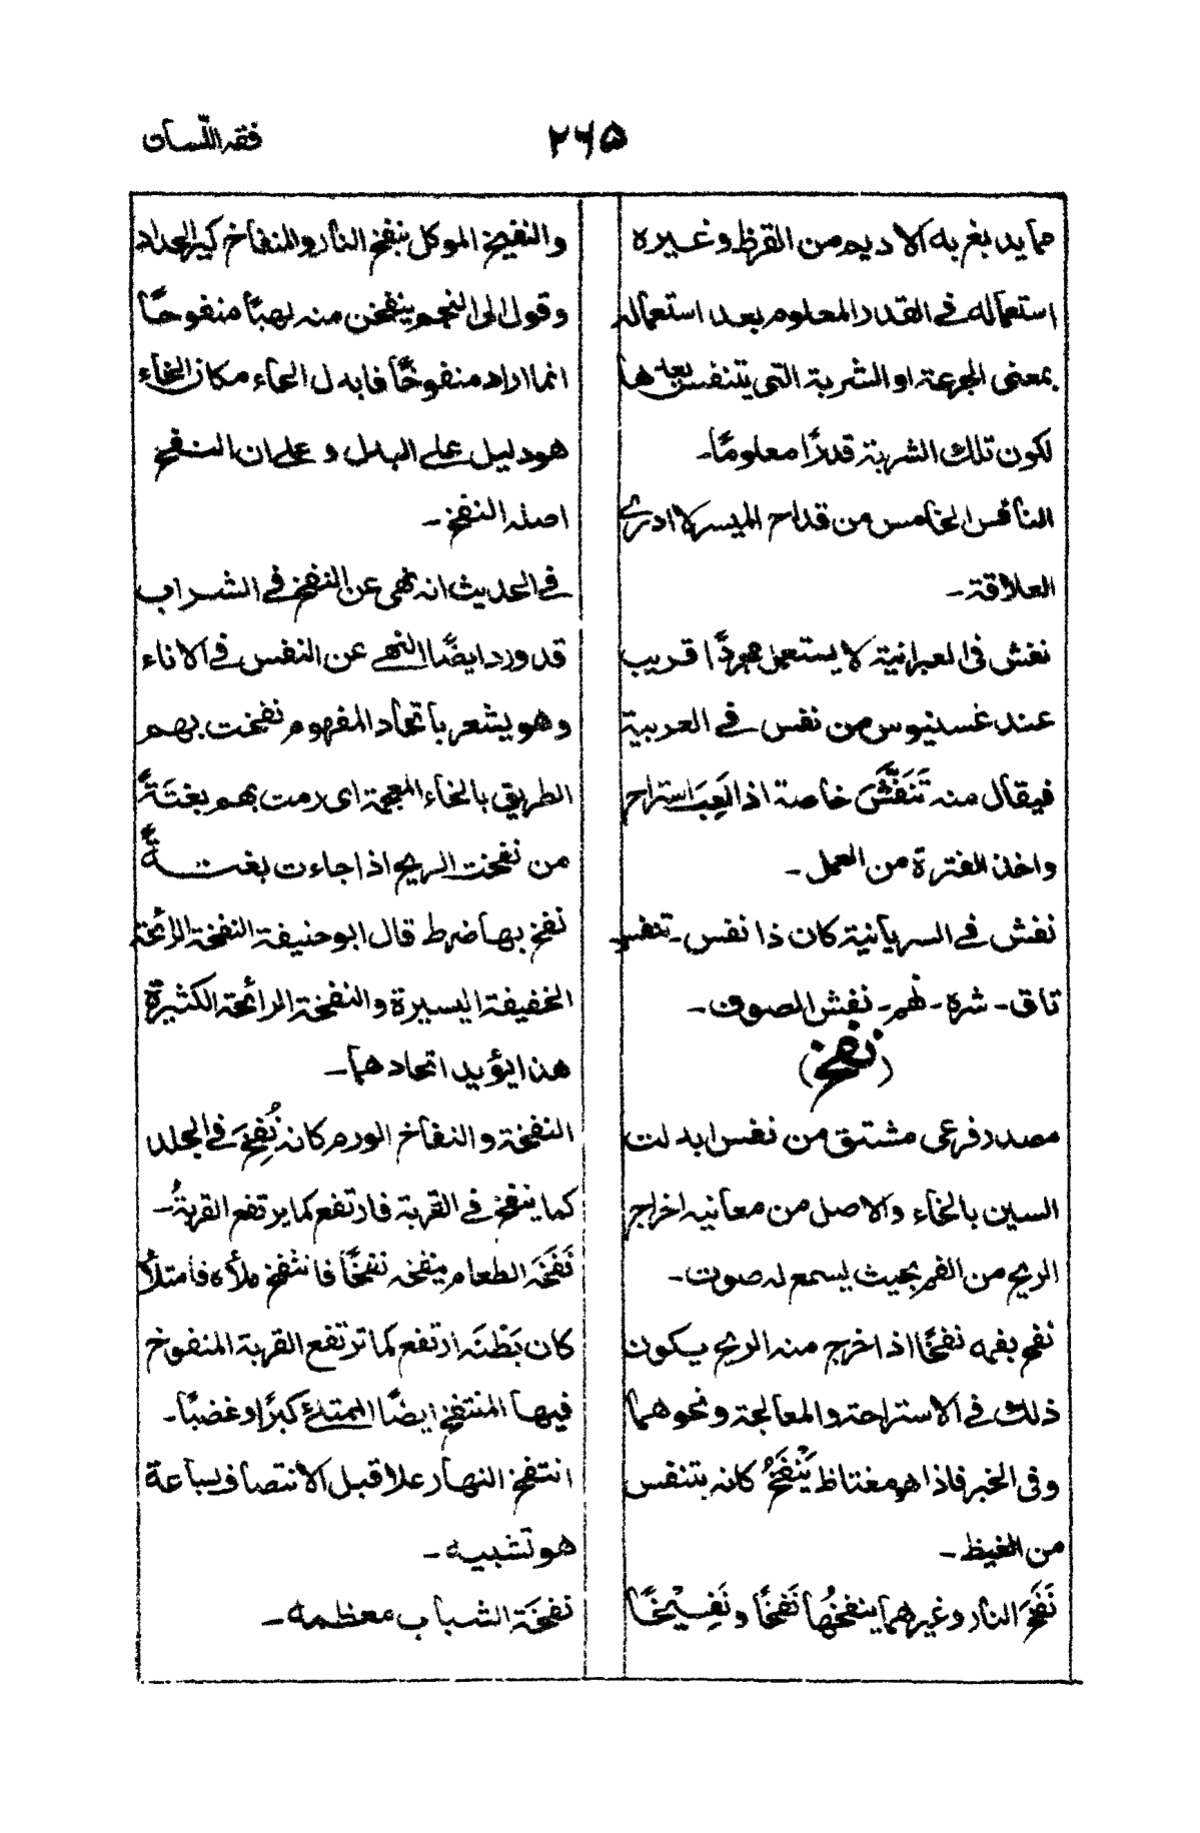 ۲۶۵
فقه اللّسان
مما يدبغ به الاديم من القرظ وغيره
استعماله فى القدر المعلوم بعد استعماله
بمعنى الجرعة او الشربة التى يتنفس بعدها
لكون تلك الشربة قدرًا معلومًا۔
النافس الخامس من قداح الميسر لا ادرى
العلاقة۔
نفش فى العبرانية لا يستعمل مجردًا قريب
عند غسنيوس من نفس فى العربية
فيقال منه تَنَفَّشَ خاصة اذا تعِبَ استراح
واخذ الفترة من العمل۔
نفش فى السريانية كان ذا نفس۔ تنفس
تاق۔ شره۔ نهم۔ نفش الصوف۔
(نفخ)
مصدر فرعى مشتق من نفس ابدلت
السين بالخاء والاصل من معانيه اخراج
الريح من الفم بحيث يسمع له صوت۔
نفخ بفمه نفخًا اذا خرج منه الريح يكون
ذلك فى الاستراحة والمعالجة ونحوهما
وفى الخبر فاذا هو مغتاظ يَنْفَخُ كانه يتنفس
من الغيظ۔
نَفَخَ النار وغيرهما ينفخُها نَفخًا ونَفِيْخًا
والنفيخ الموكل بنفخ النار والمنفاخ كير الحداد
وقول الى النجم ينفخن منه لهبًا منفوحًا
انما اراد منفوخًا فابدل الحاء مكان الخاء
هو دليل على البدل و على ان النفخ
اصله النفخ۔
فى الحديث انه نهى عن النفخ فى الشراب
قد ورد ايضًا النهى عن النفس فى الاناء
وهو يشعر باتحاد المفهوم نفخت بهم
الطريق بالخاء المعجمة اى رمت بهم بغتَةً
من نفخت الريح اذا جاءت بغتةً
نفخ بها ضرط قال ابو حنيفة النفخة الرائحة
الخفيفة اليسيرة والنفخة الرائحة الكثيرة
هذا يؤيد اتحادهما۔
النفخة والنفاخ الورم كانه نُفِخَ فى الجلد
كما ينفخ فى القربة فارتفع كما يرتفع القربةُ۔
نَفَخَه الطعام ينفخه نفخًا فانتفخ ملأه فامتلأ
كان بَطْنَه ارتفع كما ترتفع القربة المنفوخ
فيها المنتفخ ايضًا الممتلئ كبرًا و غضبًا۔
انتفخ النهار علا قبل الانتصاف بساعة
هو تشبيه۔
نفخَة الشباب معظمه۔